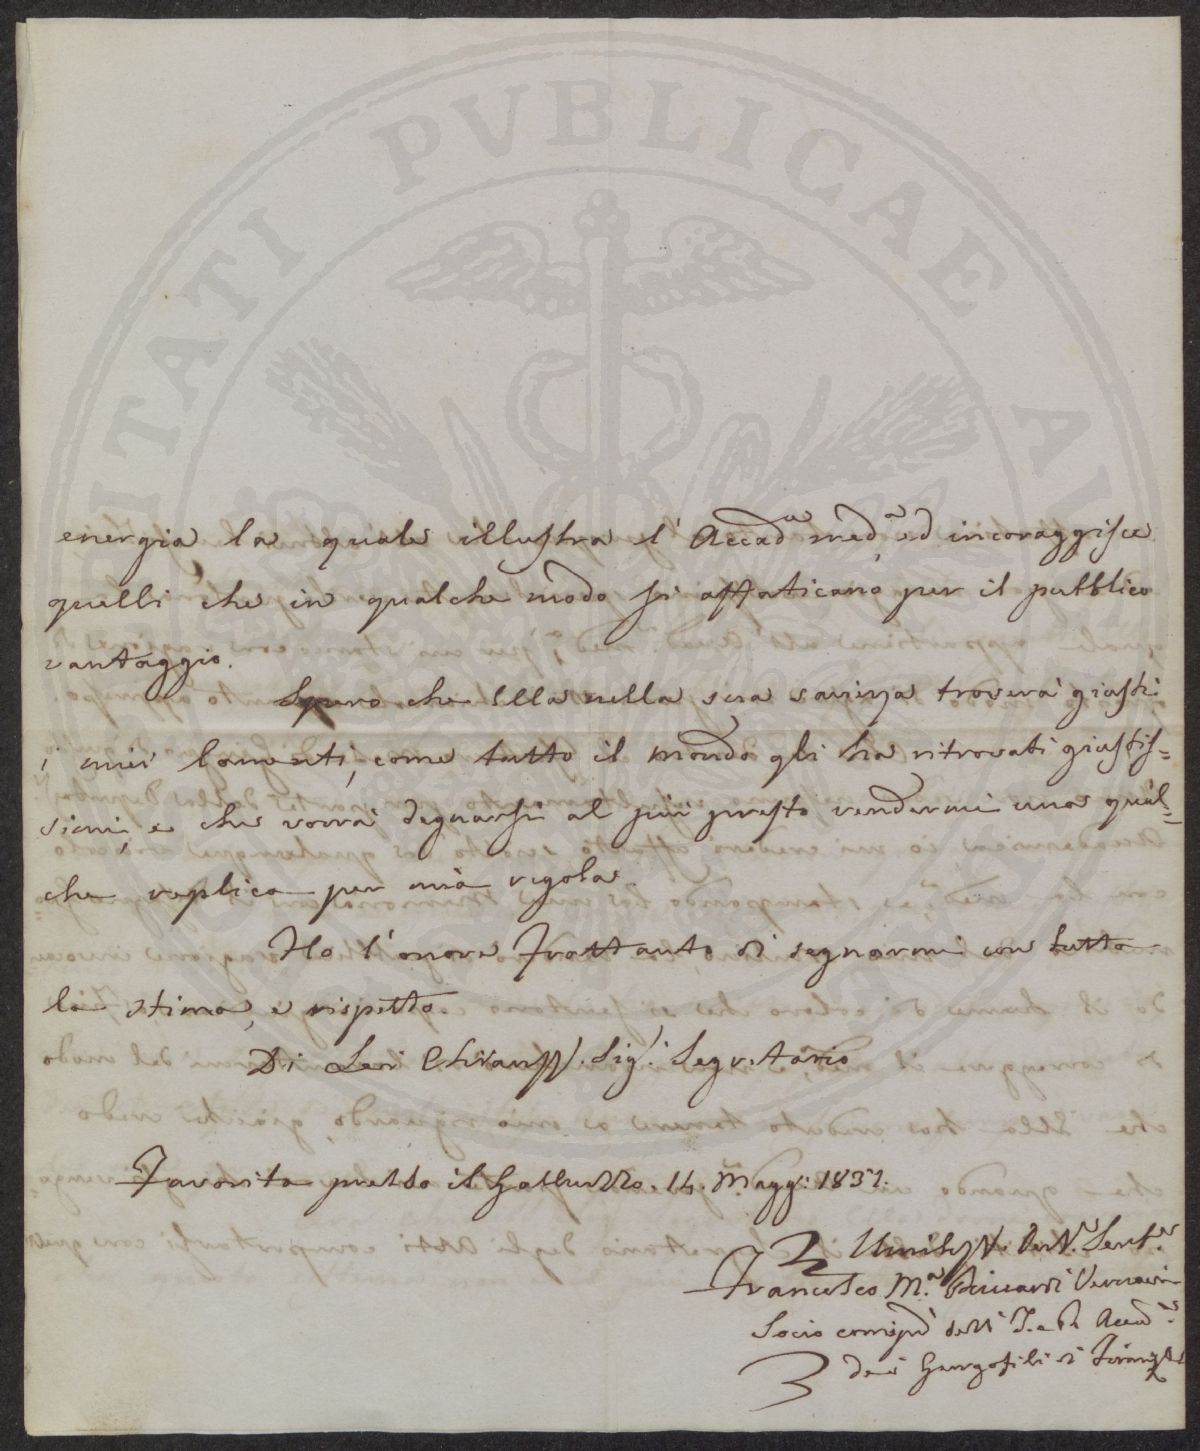 PROSPERITATI PVBLICAE AV
energia la quale illustra l'Accad.a med.a ed incoraggisce
quelli che in qualche modo si affaticano per il pubblico
vantaggio.
Spero che Ella nella sua saviezza troverà giusti
i miei lamenti, come tutto il mondo gli ha ritrovati giustis=
simi, e che vorrà degnarsi al più presto rendermi una qual=
che replica per mia regola.
Ho l'onore frattanto di segnarmi con tutta
la stima, e rispetto
Di Lei Chiariss. Sig.r Segretario
Favorita presso il Galluzzo. 14. Magg: 1831.
Umiliss. Dev. Serv.e
Francesco M.a Riccardi Vernaccia
Socio corrisp. dell' I. e R. Accad.a
dei Georgofili di Firenze